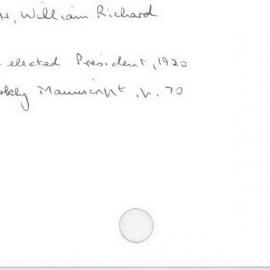 William Richard
elected President, 1920
Manuscript p. 70